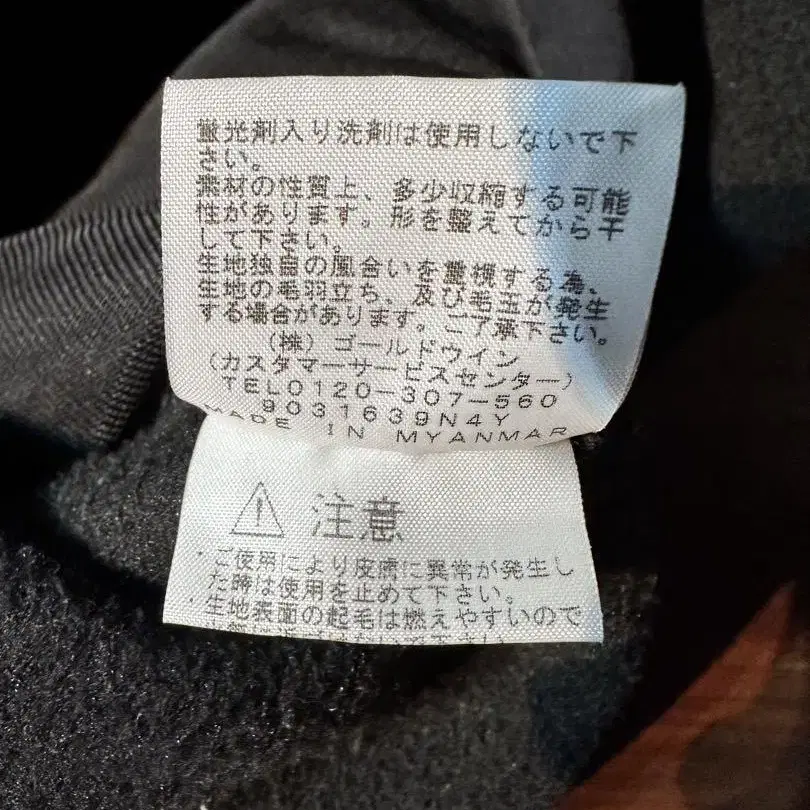 蛍光剤入り洗剤は使用しないで下
さい。
素材の性質上、多少収縮する可能
性があります。形を整えてから干
して下さい。
生地独自の風合いを重視する為、
生地の毛羽立ち、及び毛玉が発生
する場合があります。ご了承下さい。
(株) ゴールドウイン
(カスタマーサービスセンター)
TEL0120-307-560
9031639N4Y
MADE IN MYANMAR
注意
・ご使用により皮膚に異常が発生し
た時は使用を止めて下さい。
・生地表面の起毛は燃えやすいので
下さい。